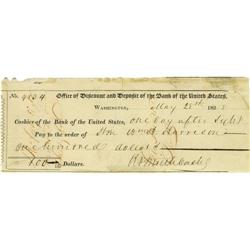 No. 4084 Office of Discount and Deposit of the Bank of the United States.
Washington, May 28th 183
Cashier of the Bank of the United States, one day after sight
Pay to the order of Hon Wm H. Harrison
one hundred dollars
100 Dollars.